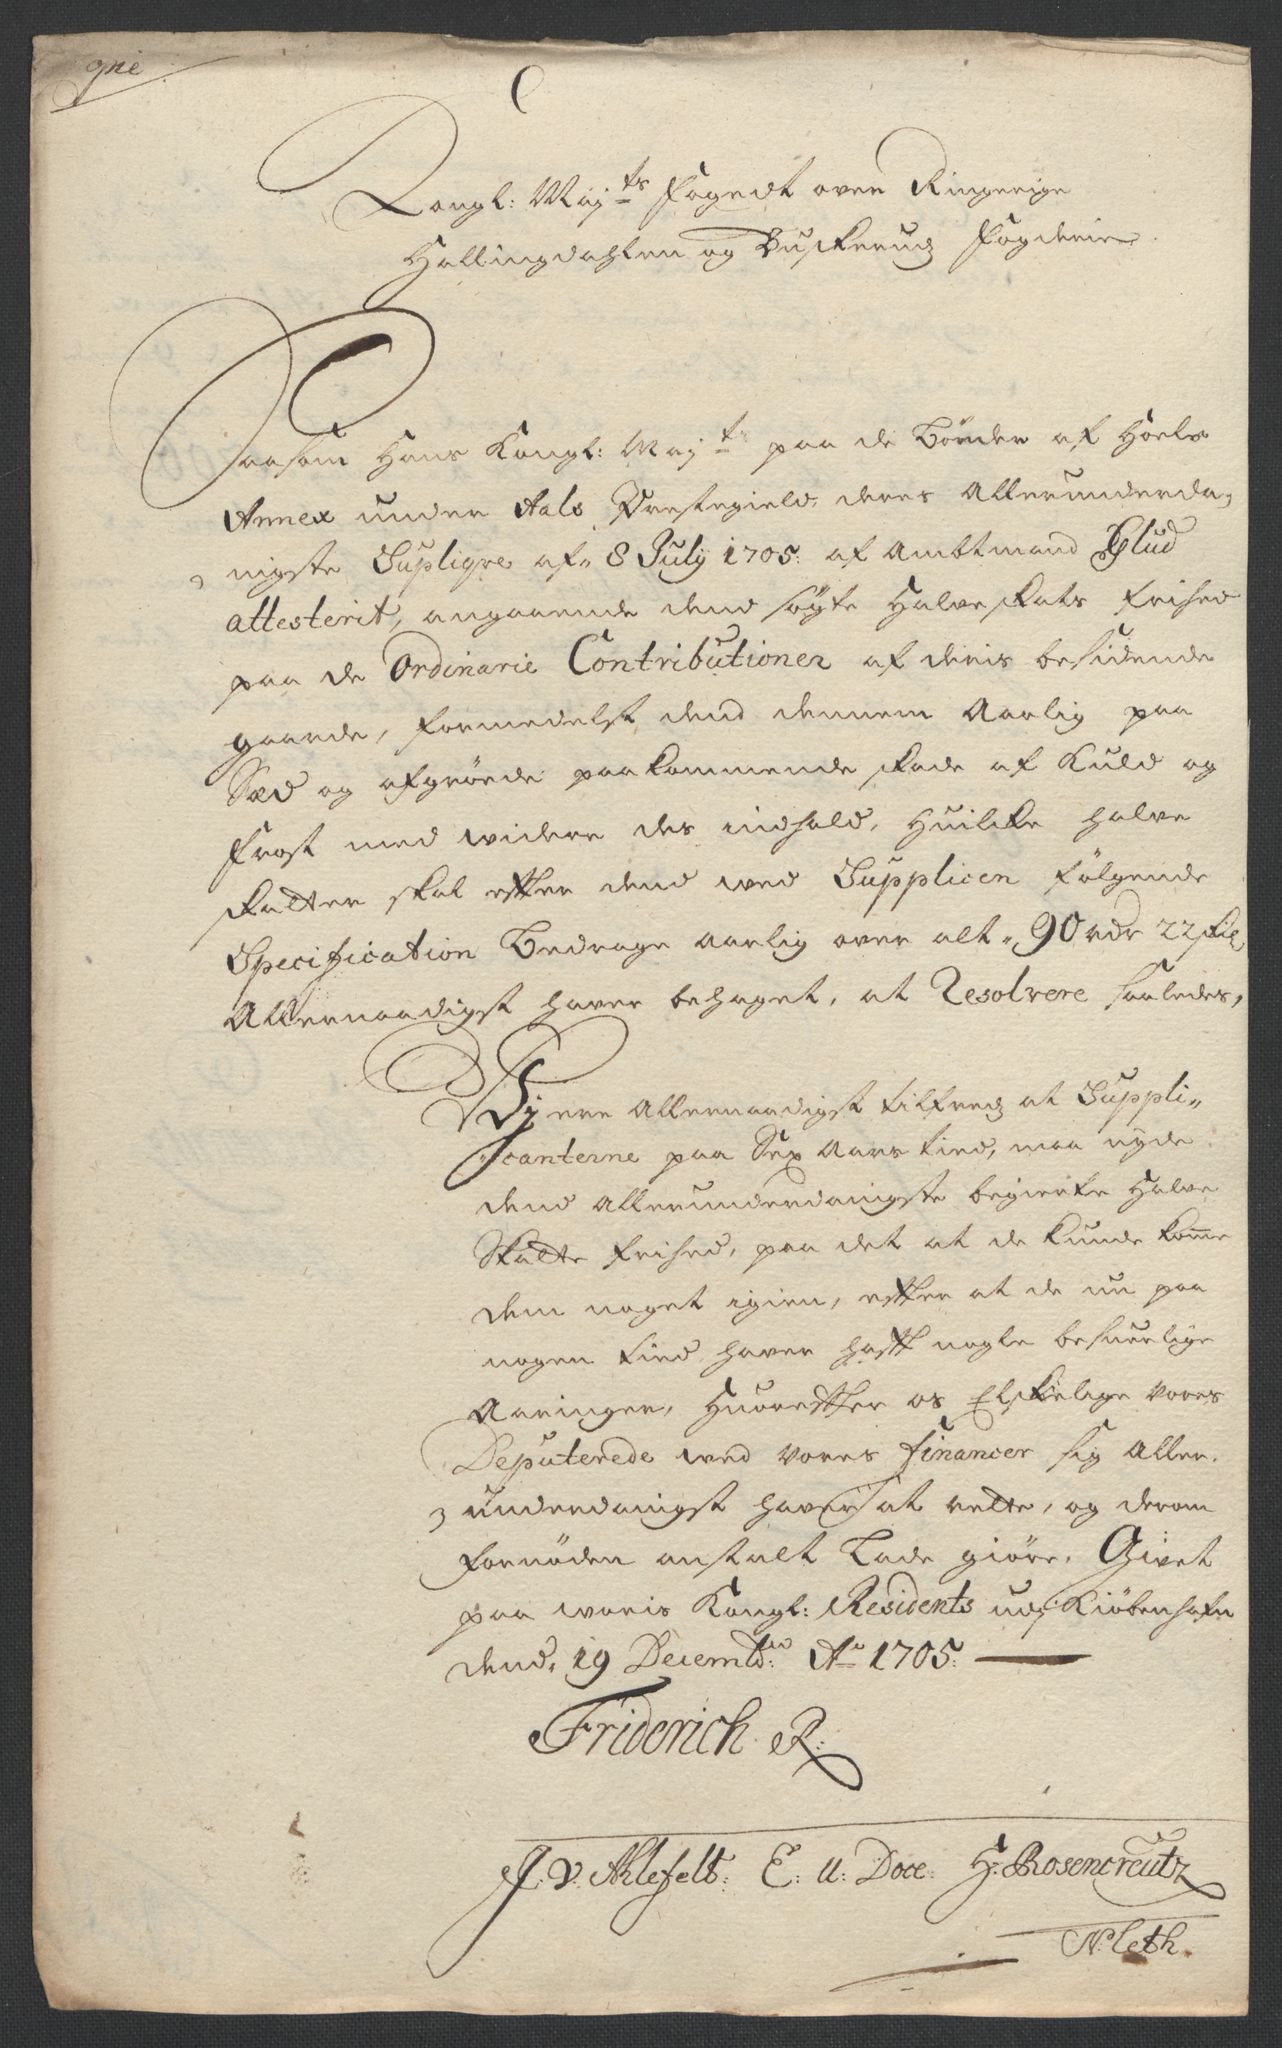 Kongl: Maj:ts Fogedt over Ringerige
Hallingdahlen og Buskeruds Fogderie.
Saasom Hans Kongl: Maj:t paa de Bönder af Hoels
Annex under Aals Prestegield, deres Allerunderda,
nigste Supliqve af 8 July 1705. af Ambtmand Glud
attesterit, angaaende dend søgte Halve Skats frihed
paa de Ordinarie Contributioner af deris besidende
gaarde, formedelst dend dennem Aarlig paa
Sæd og afgröede paakommende skade af Kuld og
Frost med widere des indhold, Huilcke halve
skatter skal efter dend wed Supplicen fölgende
Specification bedrage aarlig over alt 90 rdr 22 skl,
Allernaadigst haver behaget, at Resolvere saaledes,
Vj ere Allernaadigst tilfreds at Suppli„
„canterne paa Sex Aars tied, maa nyde
dend allerunderdanigste begierte Halve
Skatte frihed, paa det at de kunde komme
dem noget igien, efter at de nu paa
nogen tied haver haft nogle besuerlige
Aaringer, Huorefter os Elskelige vores
Deputerede wed vores Financer sig Aller,
underdanigst haver at rette, og derom
fornöden anstalt lade giöre. Givet
paa woris Kongl: Residents udj Kiöbenhafn
dend. 19 Decembr: Ao 1705.
Friderich R:
V. Ahlefelt: E: U: Dose: H: Rosencreutz
N: Leth.